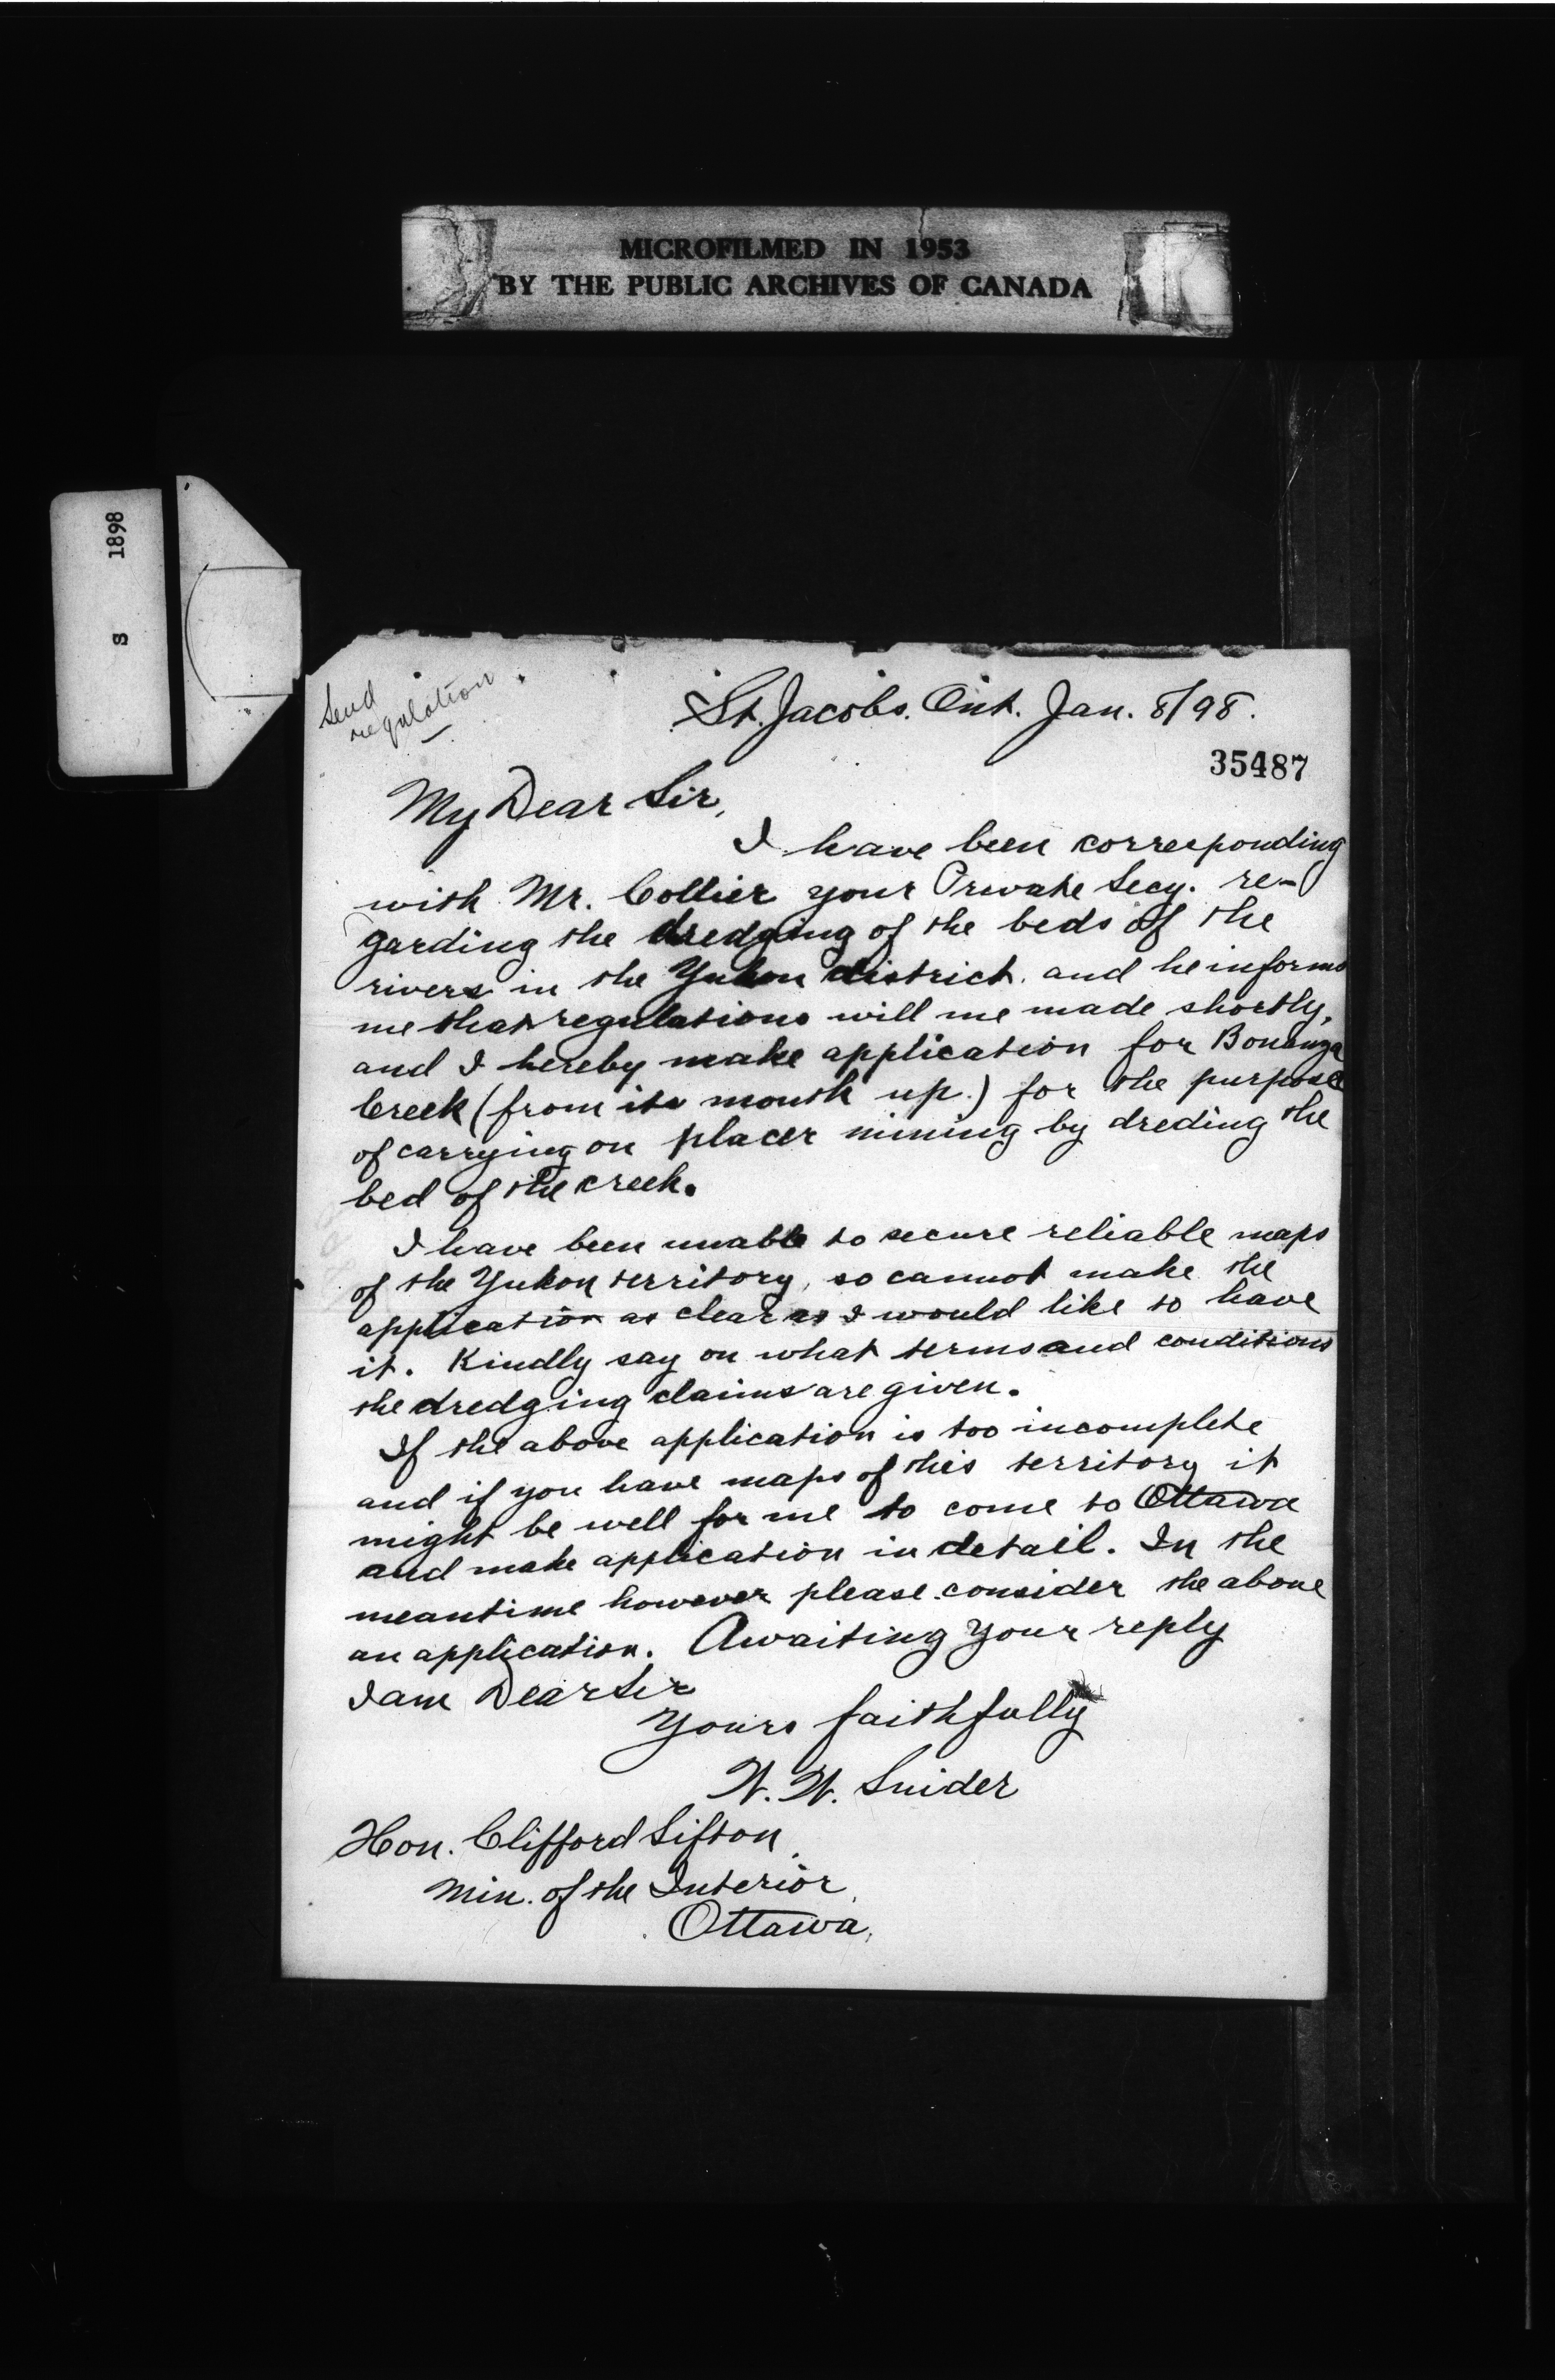 MICROFILMED IN 1953
BY THE PUBLIC ARCHIVES OF CANADA
S 1898
Send
regulation
St. Jacobs. Ont. Jan. 8/98.
35487
My Dear Sir,
I have been corresponding
with Mr. Collier your Private Secy. re-
garding the dredging of the beds of the
rivers in the Yukon district. and he informs
me that regulations will me made shortly,
and I hereby make application for Bonanza
Creek (from its mouth up.) for the purpose
of carrying on placer mining by dreding the
bed of the creek.
I have been unable to secure reliable maps
of the Yukon territory, so cannot make the
application as clear as I would like to have
it. Kindly say on what terms and conditions
the dredging claims are given.
If the above application is too incomplete
and if you have maps of this territory it
might be well for me to come to Ottawa
and make application in detail. In the
meantime however please consider the above
an application. Awaiting your reply
I am Dear Sir
Yours faithfully
W. W. Snider
Hon. Clifford Sifton
Min. of the Interior,
Ottawa,